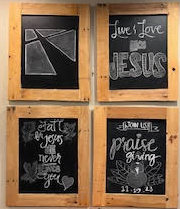 Live & Love
like
JESUS
Fall
for Jesus
He
never
leaves
you
{JOHN 1:53}
praise
giving
11.19.23